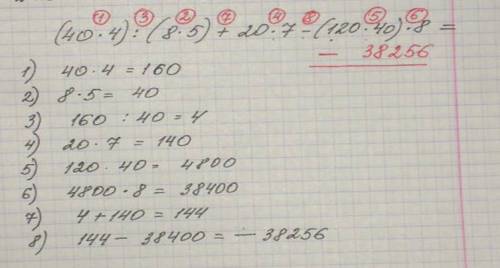 ① ③ ② ⑦ ④ ⑧ ⑤ ⑥
(40·4):(8·5)+20·7-(120·40)·8=
- 38256
1) 40·4=160
2) 8·5= 40
3) 160 : 40=4
4) 20·7 = 140
5) 120·40= 4800
6) 4800·8= 38400
7) 4+140=144
8) 144- 38400= -38256